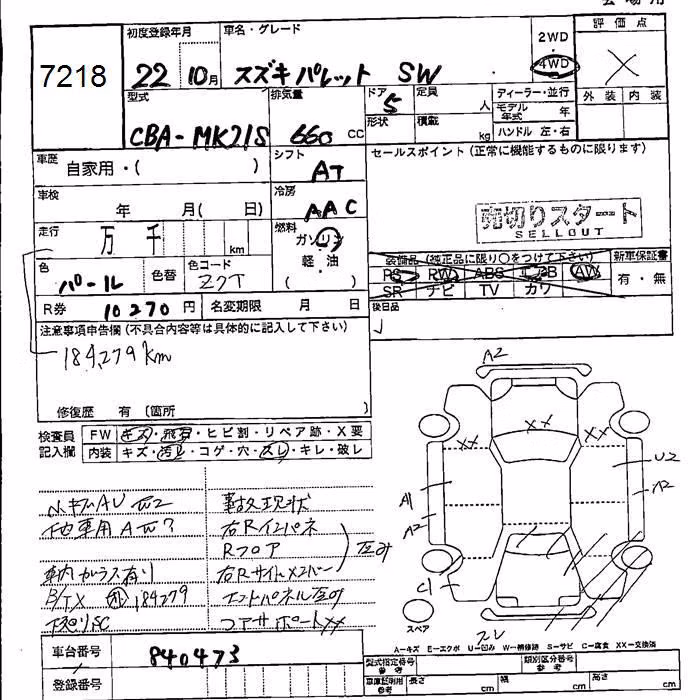 会場用
初度登録年月 車名・グレード 2WD 評価点
7218 22 10月 スズキ パレット SW 4WD X
型式 排気量 ドア 定員 ディーラー・並行 外装 内装
5 人 モデル年式 年
CBA-MK21S 660 CC 形状 積載 kg ハンドル 左・右
車歴 自家用・( ) シフト AT セールスポイント(正常に機能するものに限ります)
車検 年 月( 日) 冷房 AAC
売切りスタート
SELLOUT
走行 万 千 km 燃料 ガソリン
軽・油
( )
色 パール 色替 色コード Z7T
装備品(純正品に限り○をつけて下さい) 新車保証書
PS RW ABS エアB AW 有・無
SR ナビ TV カワ
R券 10270円 名変期限 月 日 後日品
注意事項申告欄(不具合内容等は具体的に記入して下さい)
184,279km
修復歴 有 (箇所 )
A2
XX
XX XX
U2
A1 A2
A2
C1
検査員 FW キズ・飛石・ヒビ割・リペア跡・X要
記入欄 内装 キズ・汚れ・コゲ・穴・スレ・キレ・破レ
小キズAU W2 事故現状
他車用AW? 右Rインパネ
Rフロア 歪み
車内ガラス有り 右Rサイドメンバー
B/TX 184279 エンドパネル歪み
下廻りSC コアサポートXX
スペア
スレ
A=キズ E=エクボ U=凹み W=補修跡 S=サビ C=腐食 XX=交換済
車台番号 840473 型式指定番号 類別区分番号
登録番号 車庫証明用参考 長さ cm 幅 cm 高さ cm